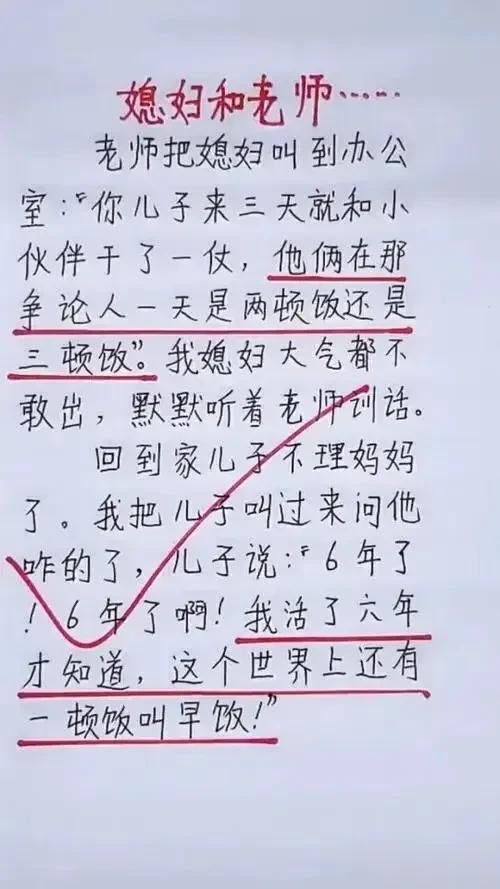 媳妇和老师……
老师把媳妇叫到办公
室:“你儿子来三天就和小
伙伴干了一仗,他俩在那
争论人一天是两顿饭还是
三顿饭”。我媳妇大气都不
敢出,默默听着老师训话。
回到家儿子不理妈妈
了。我把儿子叫过来问他
咋的了,儿子说:“6年了
!6年了啊!我活了六年
才知道,这个世界上还有
一顿饭叫早饭!”